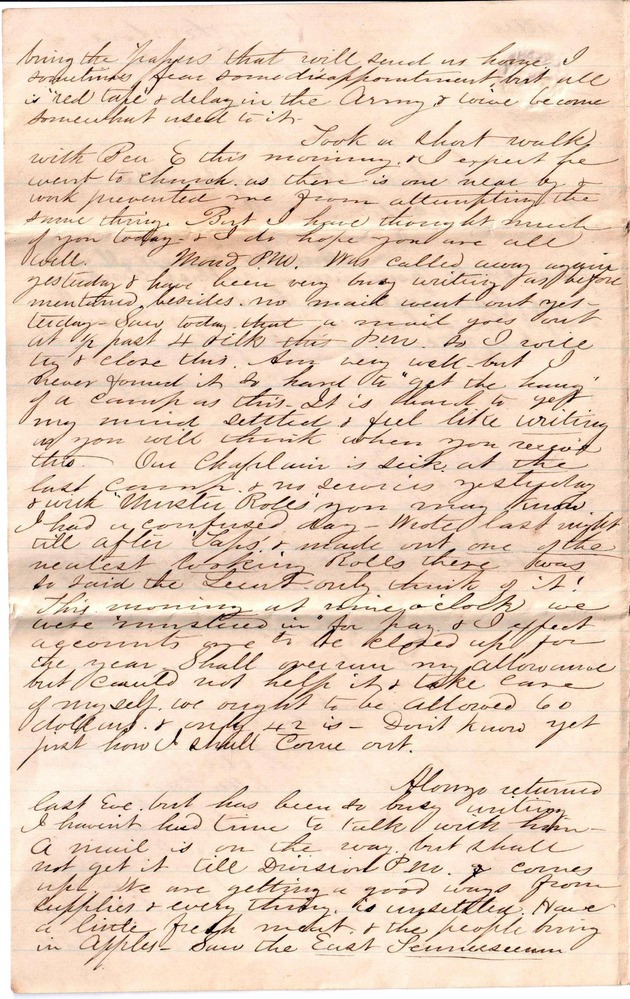 bring the papers that will send us home I
sometimes fear some disappointment but all
is "red tape" & delay in the Army & we've become
somewhat used to it.
Took a short walk
with Ben E this morning. & I expect he
went to church. as there is one near by &
work prevented me from attempting the
same thing. But I have thought much
of you today - & I do hope you are all
well. Mond P.M. Was called away again
yesterday & have been very busy writing as before
mentioned, besides. no mail went out yes-
terday - Saw today that a mail goes out
at ½ past 4 o'clk this P.M. so I will
try & close this. Am very well - but I
never found it so hard to "get the hang"
of a camp as this - It is hard to get
my mind settled & feel like writing
as you will think when you receive
this. Our Chaplain is sick, at the
last camp. & no services yesterday
& with "Muster Rolls" you may know
I had a confused day - Wrote last night
till after "Taps" & made out one of the
neatest looking Rolls there was
so said the Lieut - only think of it!
This morning at nine o'clock we
were "mustered in" for pay & I expect
accounts are to be closed up for
the year. Shall overrun my allowance
but could not help it & take care
of myself. we ought to be allowed 60
dollars. & only 42 is - Don't know yet
just how I shall come out.
Alonzo returned
last Eve. but has been so busy writing
I havn't had time to talk with him -
A mail is on the way. but shall
not get it till Division P.M. comes
up. We are getting a good ways from
supplies & every thing. is unsettled. Have
a little fresh meat. & the people bring
in apples - Saw the East Tennesseean